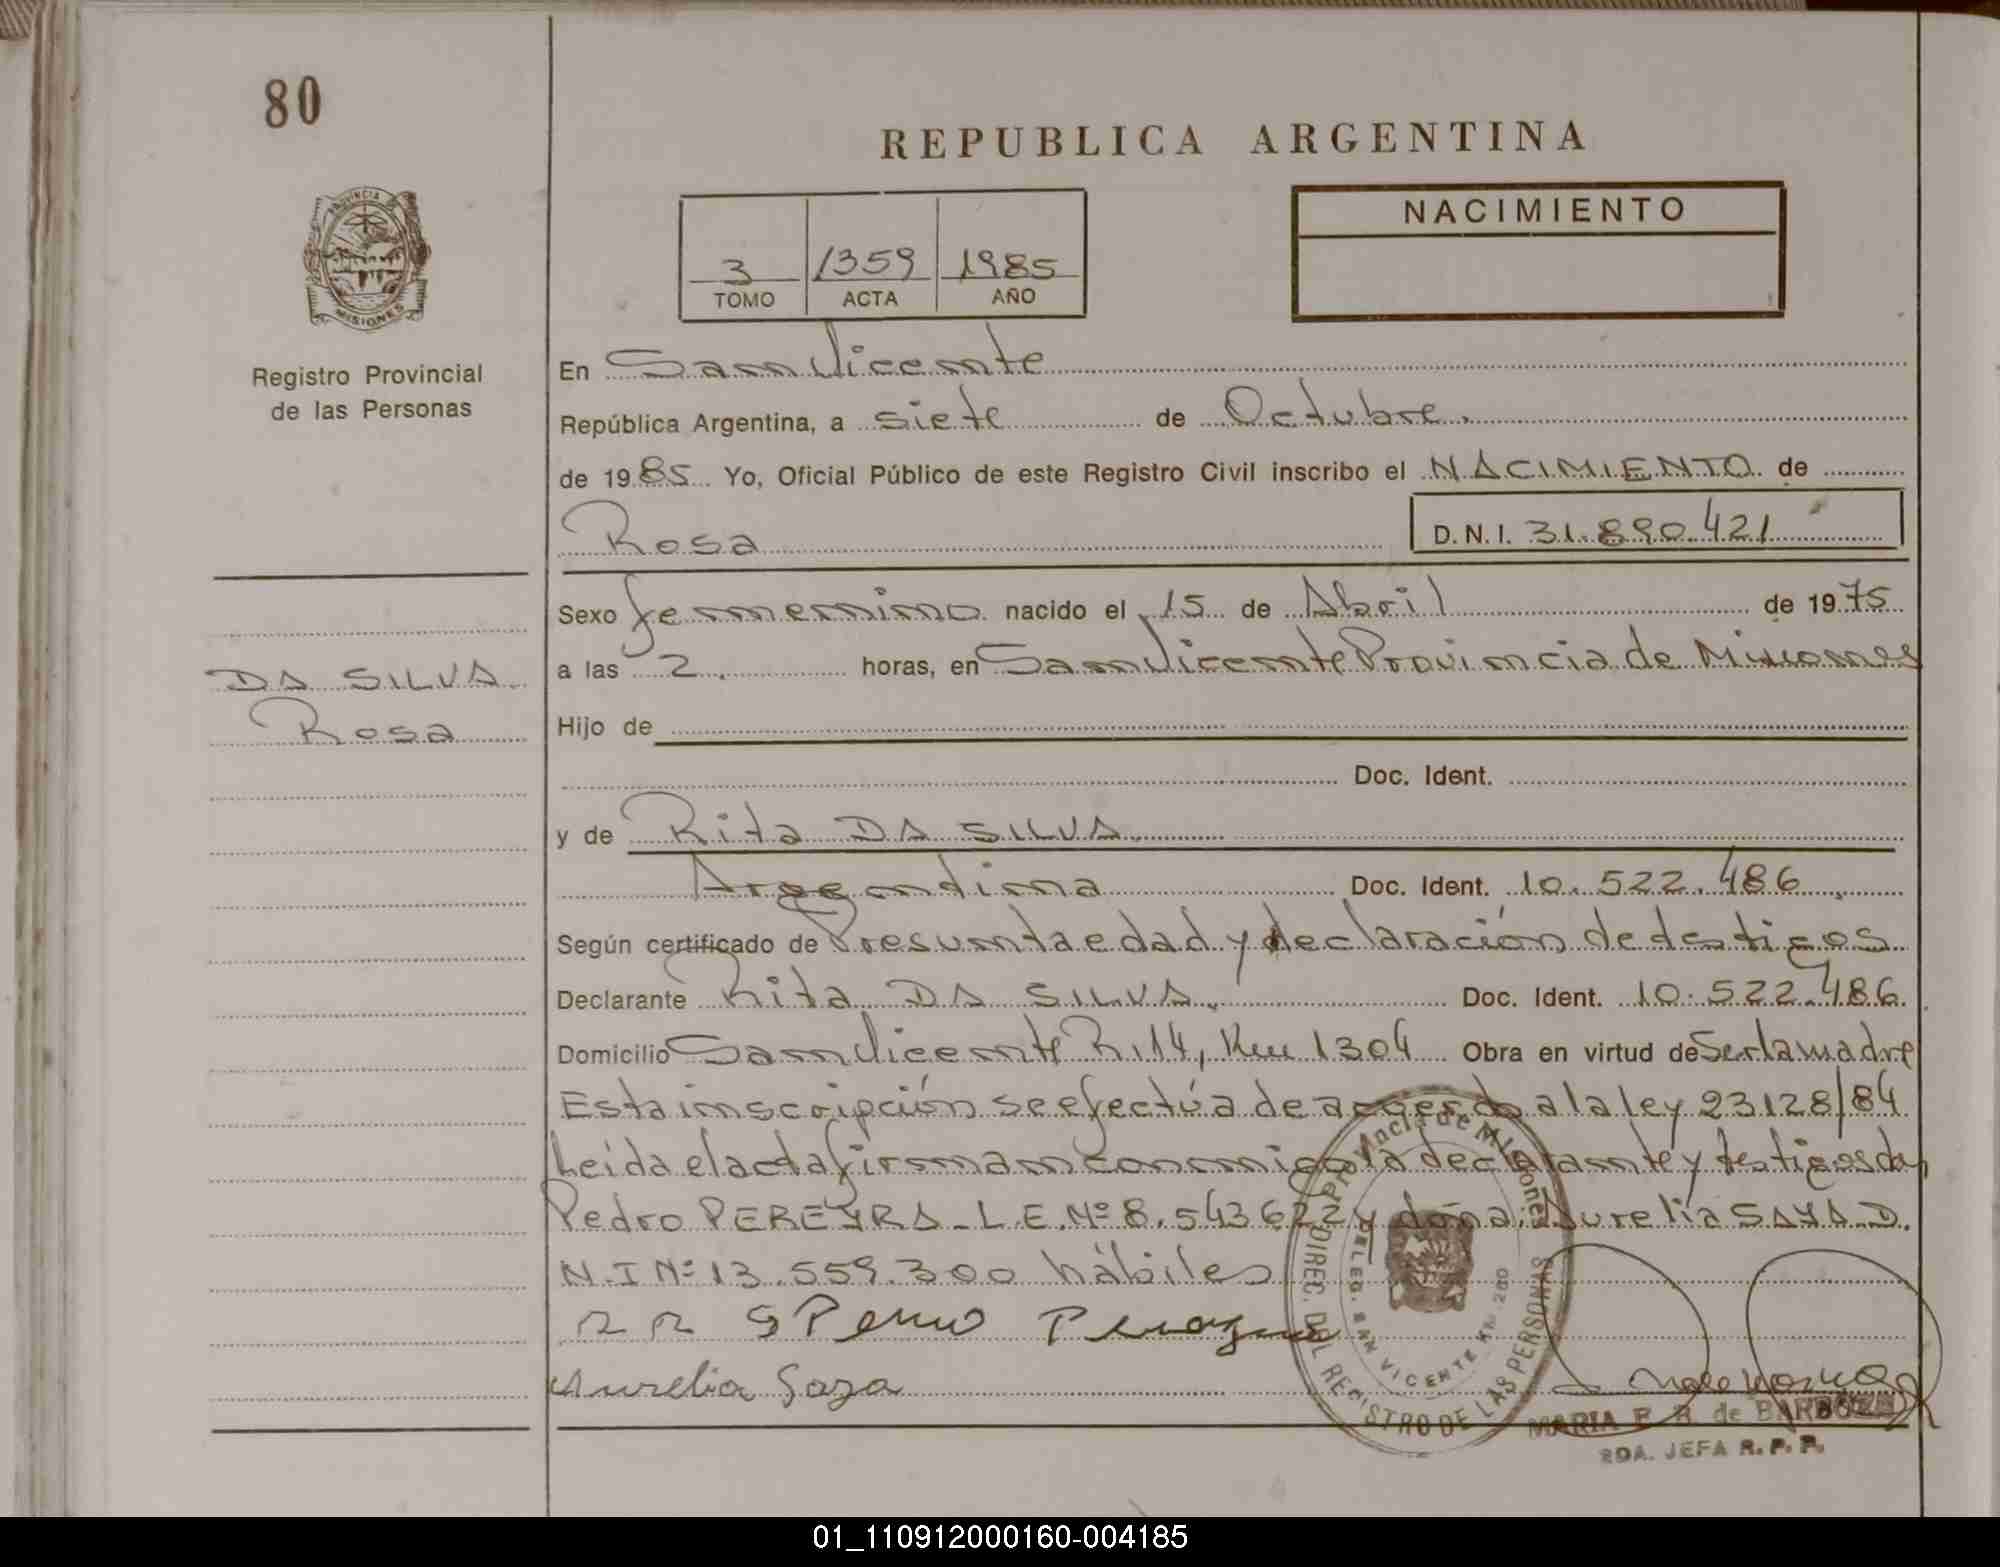 80
REPUBLICA ARGENTINA
PROVINCIA DE
MISIONES
Registro Provincial
de las Personas
3 1359 1985
TOMO ACTA AÑO
NACIMIENTO
En San Vicente
República Argentina, a siete de Octubre.
de 1985 Yo, Oficial Público de este Registro Civil inscribo el NACIMIENTO de
Rosa D.N.I. 31.890.421
Sexo femenino nacido el 15 de Abril de 1975
DA SILVA
Rosa
a las 2. horas, en San Vicente Provincia de Misiones
Hijo de
Doc. Ident.
y de Rita DA SILVA.
Argentina Doc. Ident. 10.522.486.
Según certificado de Presunta edad y declaración de testigos
Declarante Rita DA SILVA. Doc. Ident. 10.522.486.
Domicilio San Vicente R.14, Km 1304 Obra en virtud de Ser la madre
Esta inscripción se efectúa de acuerdo a la ley 23128/84
Leída el acta firman conmigo la declarante y testigos don
Pedro PEREYRA - L.E. Nº 8.543622 y doña Aurelia SAYA D.
N.I Nº 13.559.300 hábiles
Aurelia
Provincia de Misiones
DIREC. DEL REGISTRO DE LAS PERSONAS
DELEG. SAN VICENTE Km. 280
MARIA E. R. de BARBOZA
2DA. JEFA R. P. P.
01_110912000160-004185